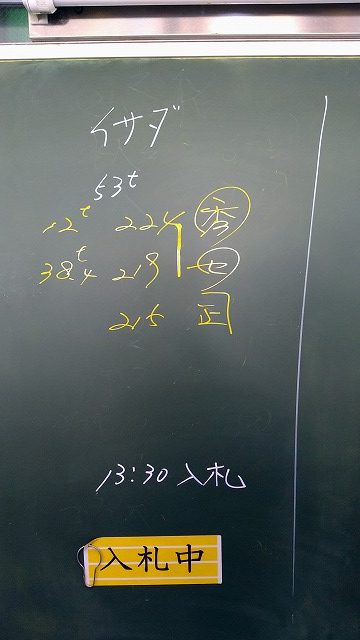 イサダ
53t
12t 224 秀
38.4t 219 七
215 正
13:30 入札
入札中